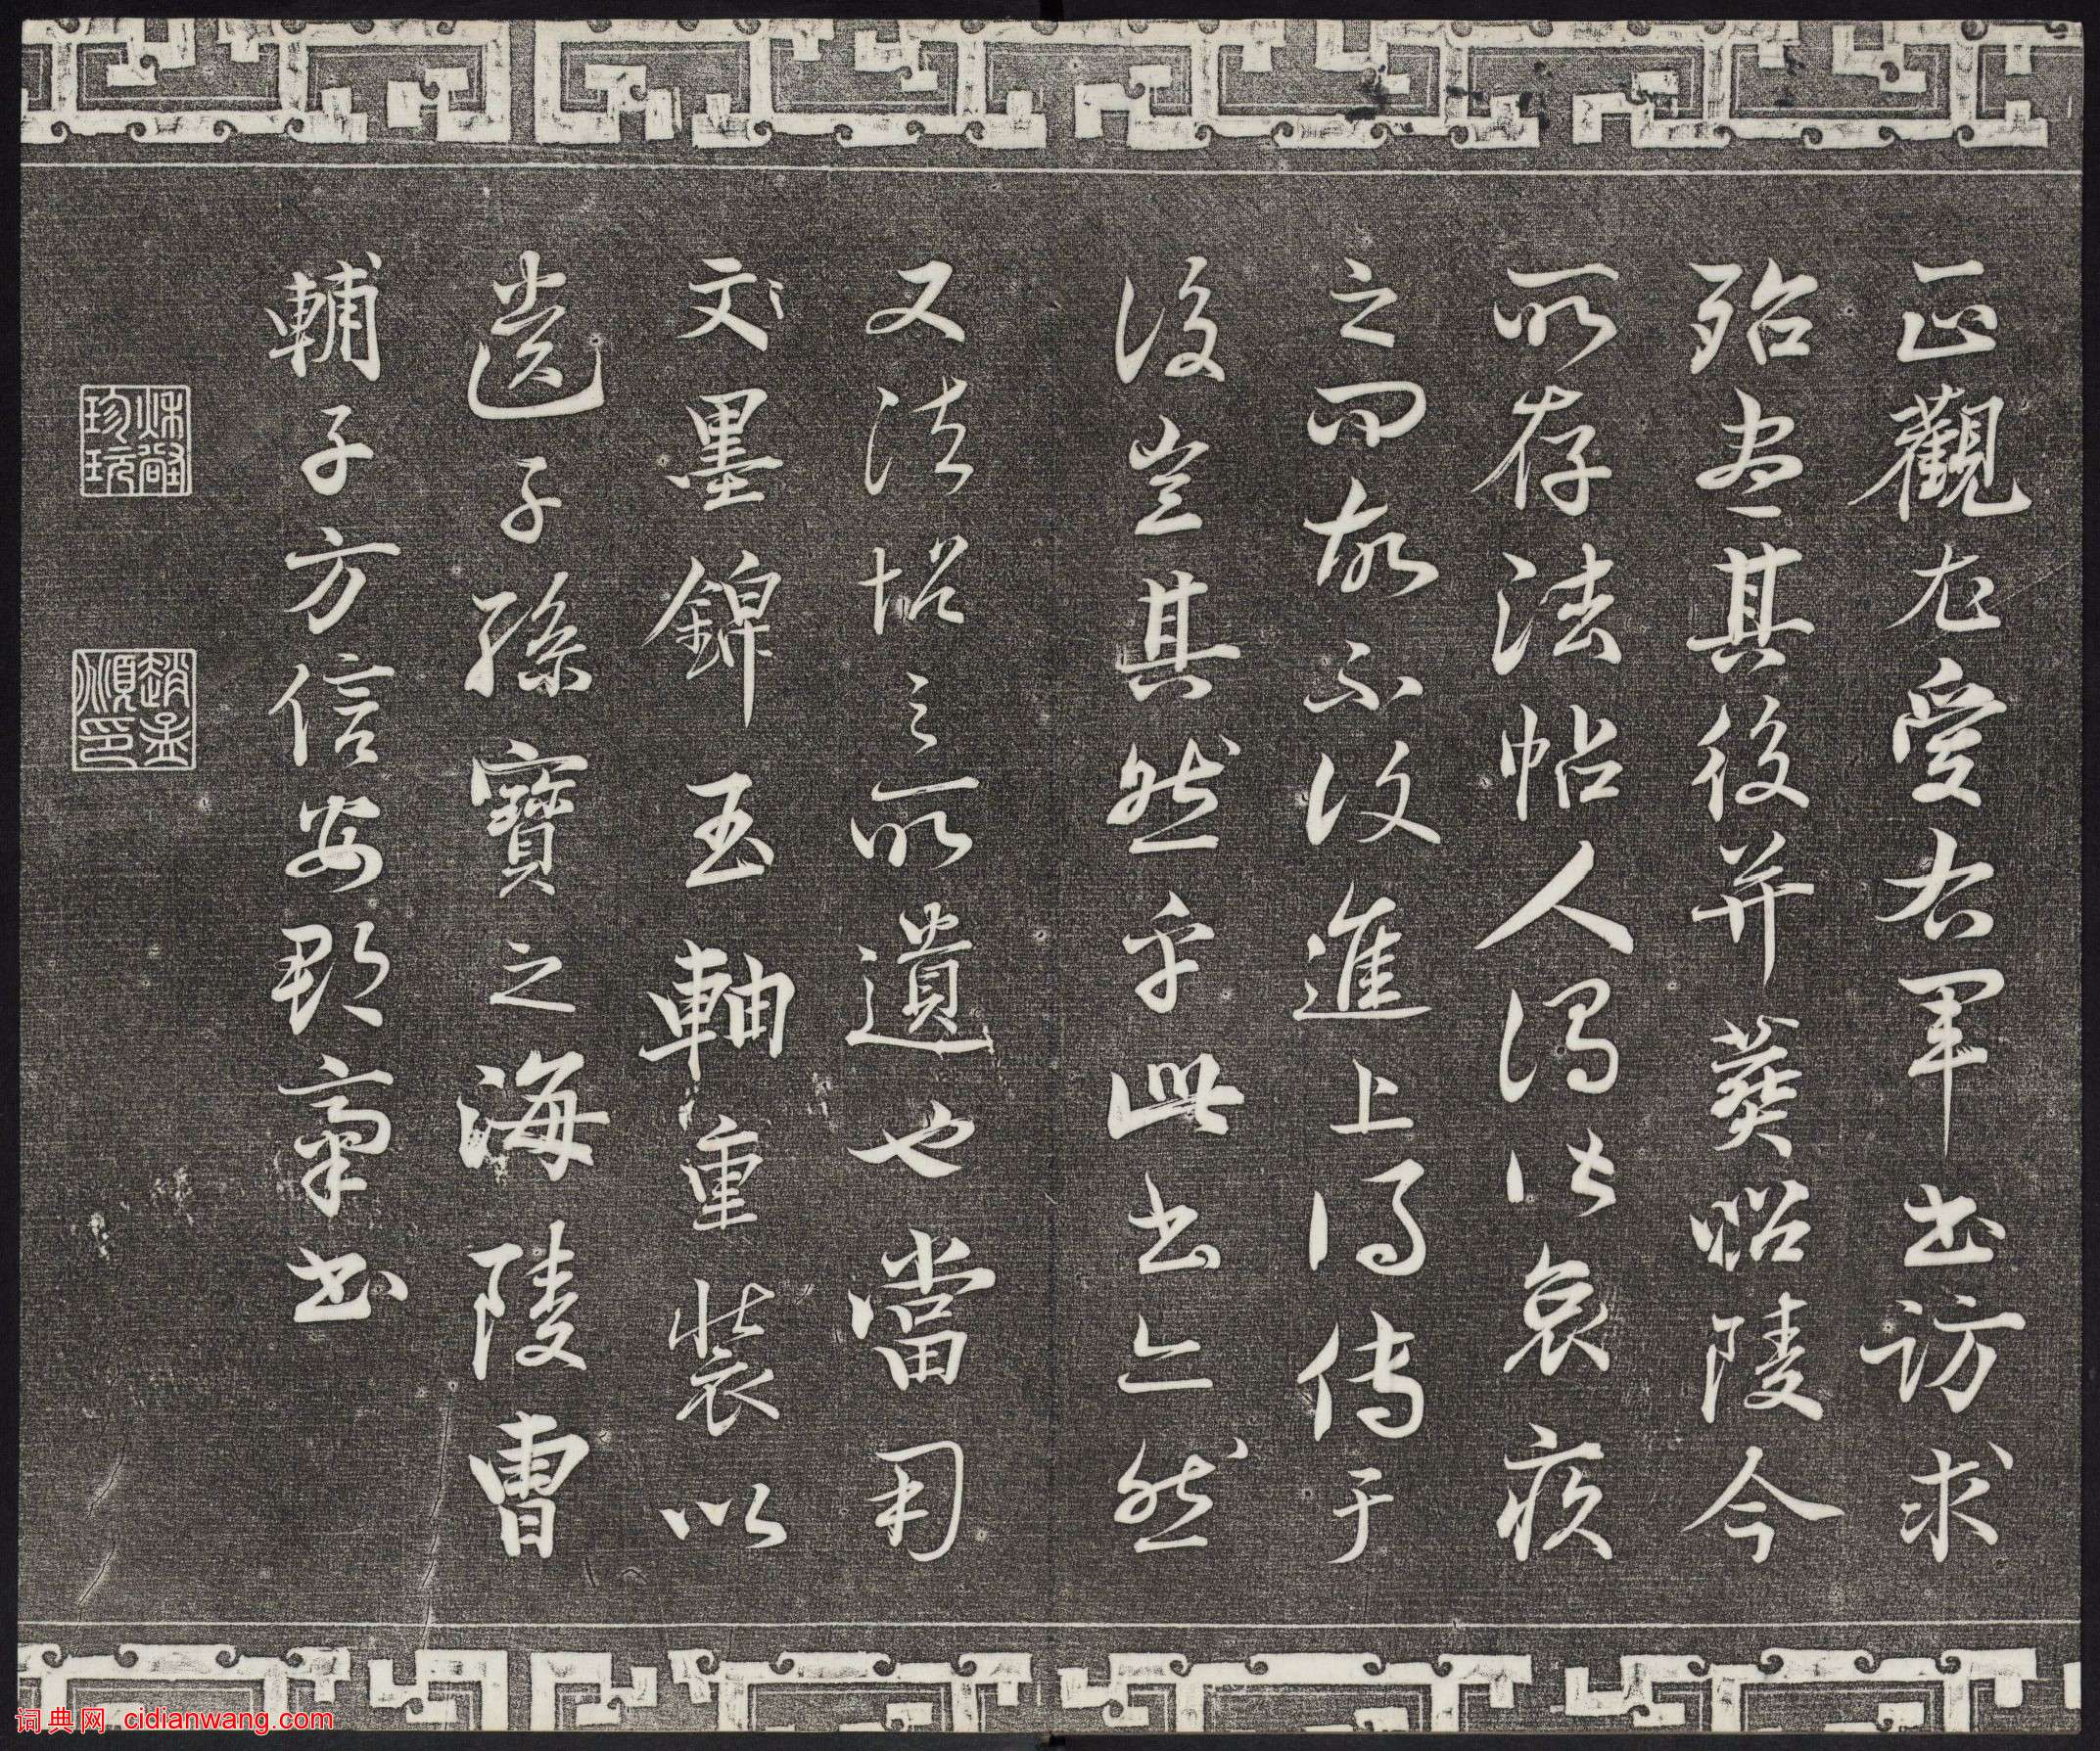 正觀尤愛右軍書訪求
殆盡其後并葬昭陵今
所存法帖人間皆哀疾
之間故不汲進上得傳于
後豈其然乎此書亦然
又法帖之所遺也當用
文墨錦玉軸重裝以
遺子孫寶之海陵曹
輔子方信安郡齋書
珍玩
趙孟
順印
词典网 cidianwang.com